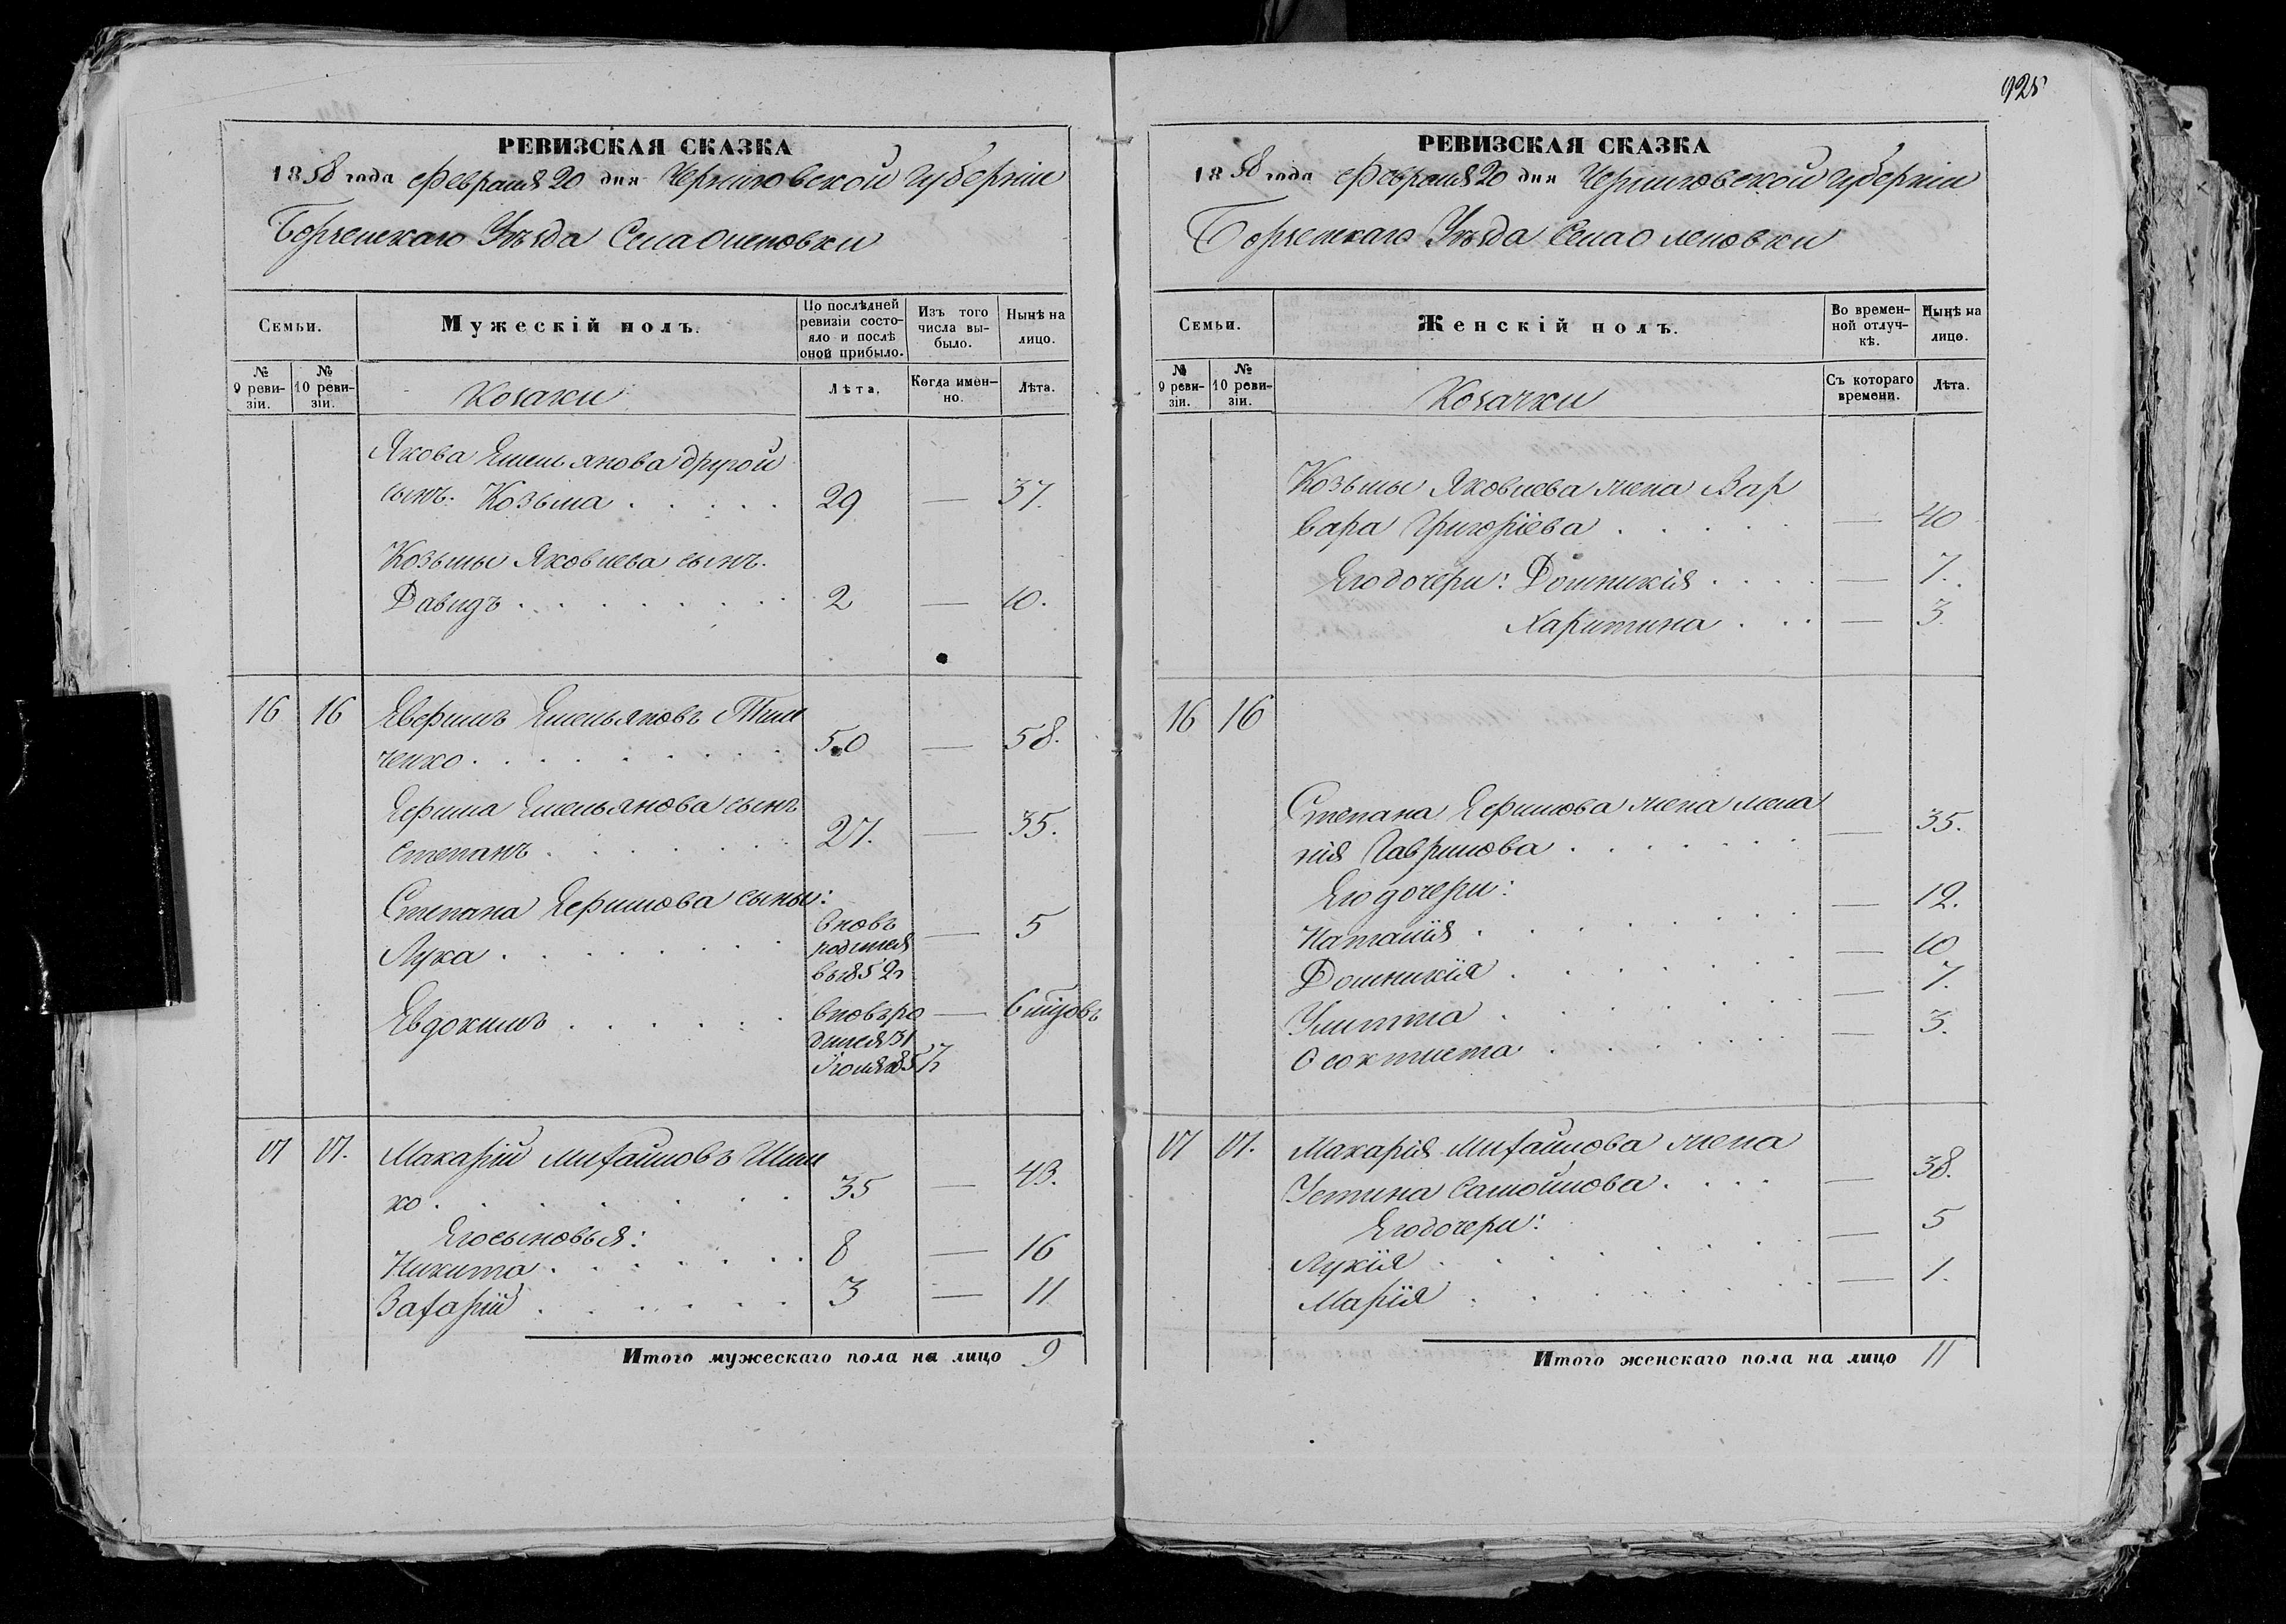 925
РЕВИЗСКАЯ СКАЗКА
1858 года Февраля 20 дня Черниговской Губерніи
Борзенскаго Уѣзда Села Оленовки
Семьи.
Мужескій полъ.
По послѣдней ревизіи состояло и послѣ оной прибыло.
Изъ того числа выбыло.
Нынѣ на лицо.
№ 9 ревизіи.
№ 10 ревизіи.
Козаки
Лѣта.
Когда именно.
Лѣта.
Якова Емельянова другой
сынъ. Козьма . . . . . 29 — 37.
Козьмы Яковлева сынъ.
Давидъ . . . . . . . . 2 — 10.
16 16
Емельяновъ
ченко . . . . . . . . 50 — 58.
Емельянова сынъ
Степанъ . . . . . . . 27. — 35.
Степана сыны:
Лука . . . . . . . вновь родился в 1852 г — 5
Евдокимъ . . . . . . вновь родился 31 Іюля 1857 — 6 мцовъ
17 17.
Макарій Михайловъ
ко . . . . . . . . 35 — 43.
Его сыновья:
Никита . . . . . . . 8 — 16
Захарій . . . . . . 3 — 11
Итого мужескаго пола на лицо 9
РЕВИЗСКАЯ СКАЗКА
1858 года Февраля 20 дня Черниговской Губерніи
Борзенскаго Уѣзда Села Оленовки
Семьи.
Женскій полъ.
Во временной отлучкѣ.
Нынѣ на лицо.
№ 9 ревизіи.
№ 10 ревизіи.
Козачки
Съ котораго времени.
Лѣта.
Козьмы Яковлева жена Вар
вара Григоріева . . . . . — 40
Его дочери: Домникія . . . . — 7.
Харитина . . . — 3.
16 16
Степана жена Мела
нія Гаврилова . . . . . . . — 35.
Его дочери:
Наталія . . . . . . . — 12.
Домникія . . . . . . . — 10
Улитта . . . . . . . — 7.
Феоктиста . . . . . . . — 3.
17 17.
Макарія Михайлова жена
Устина Самойлова . . . . — 38.
Его дочери:
Лукія . . . . . . . — 5
Марія . . . . . . . — 1.
Итого женскаго пола на лицо 11